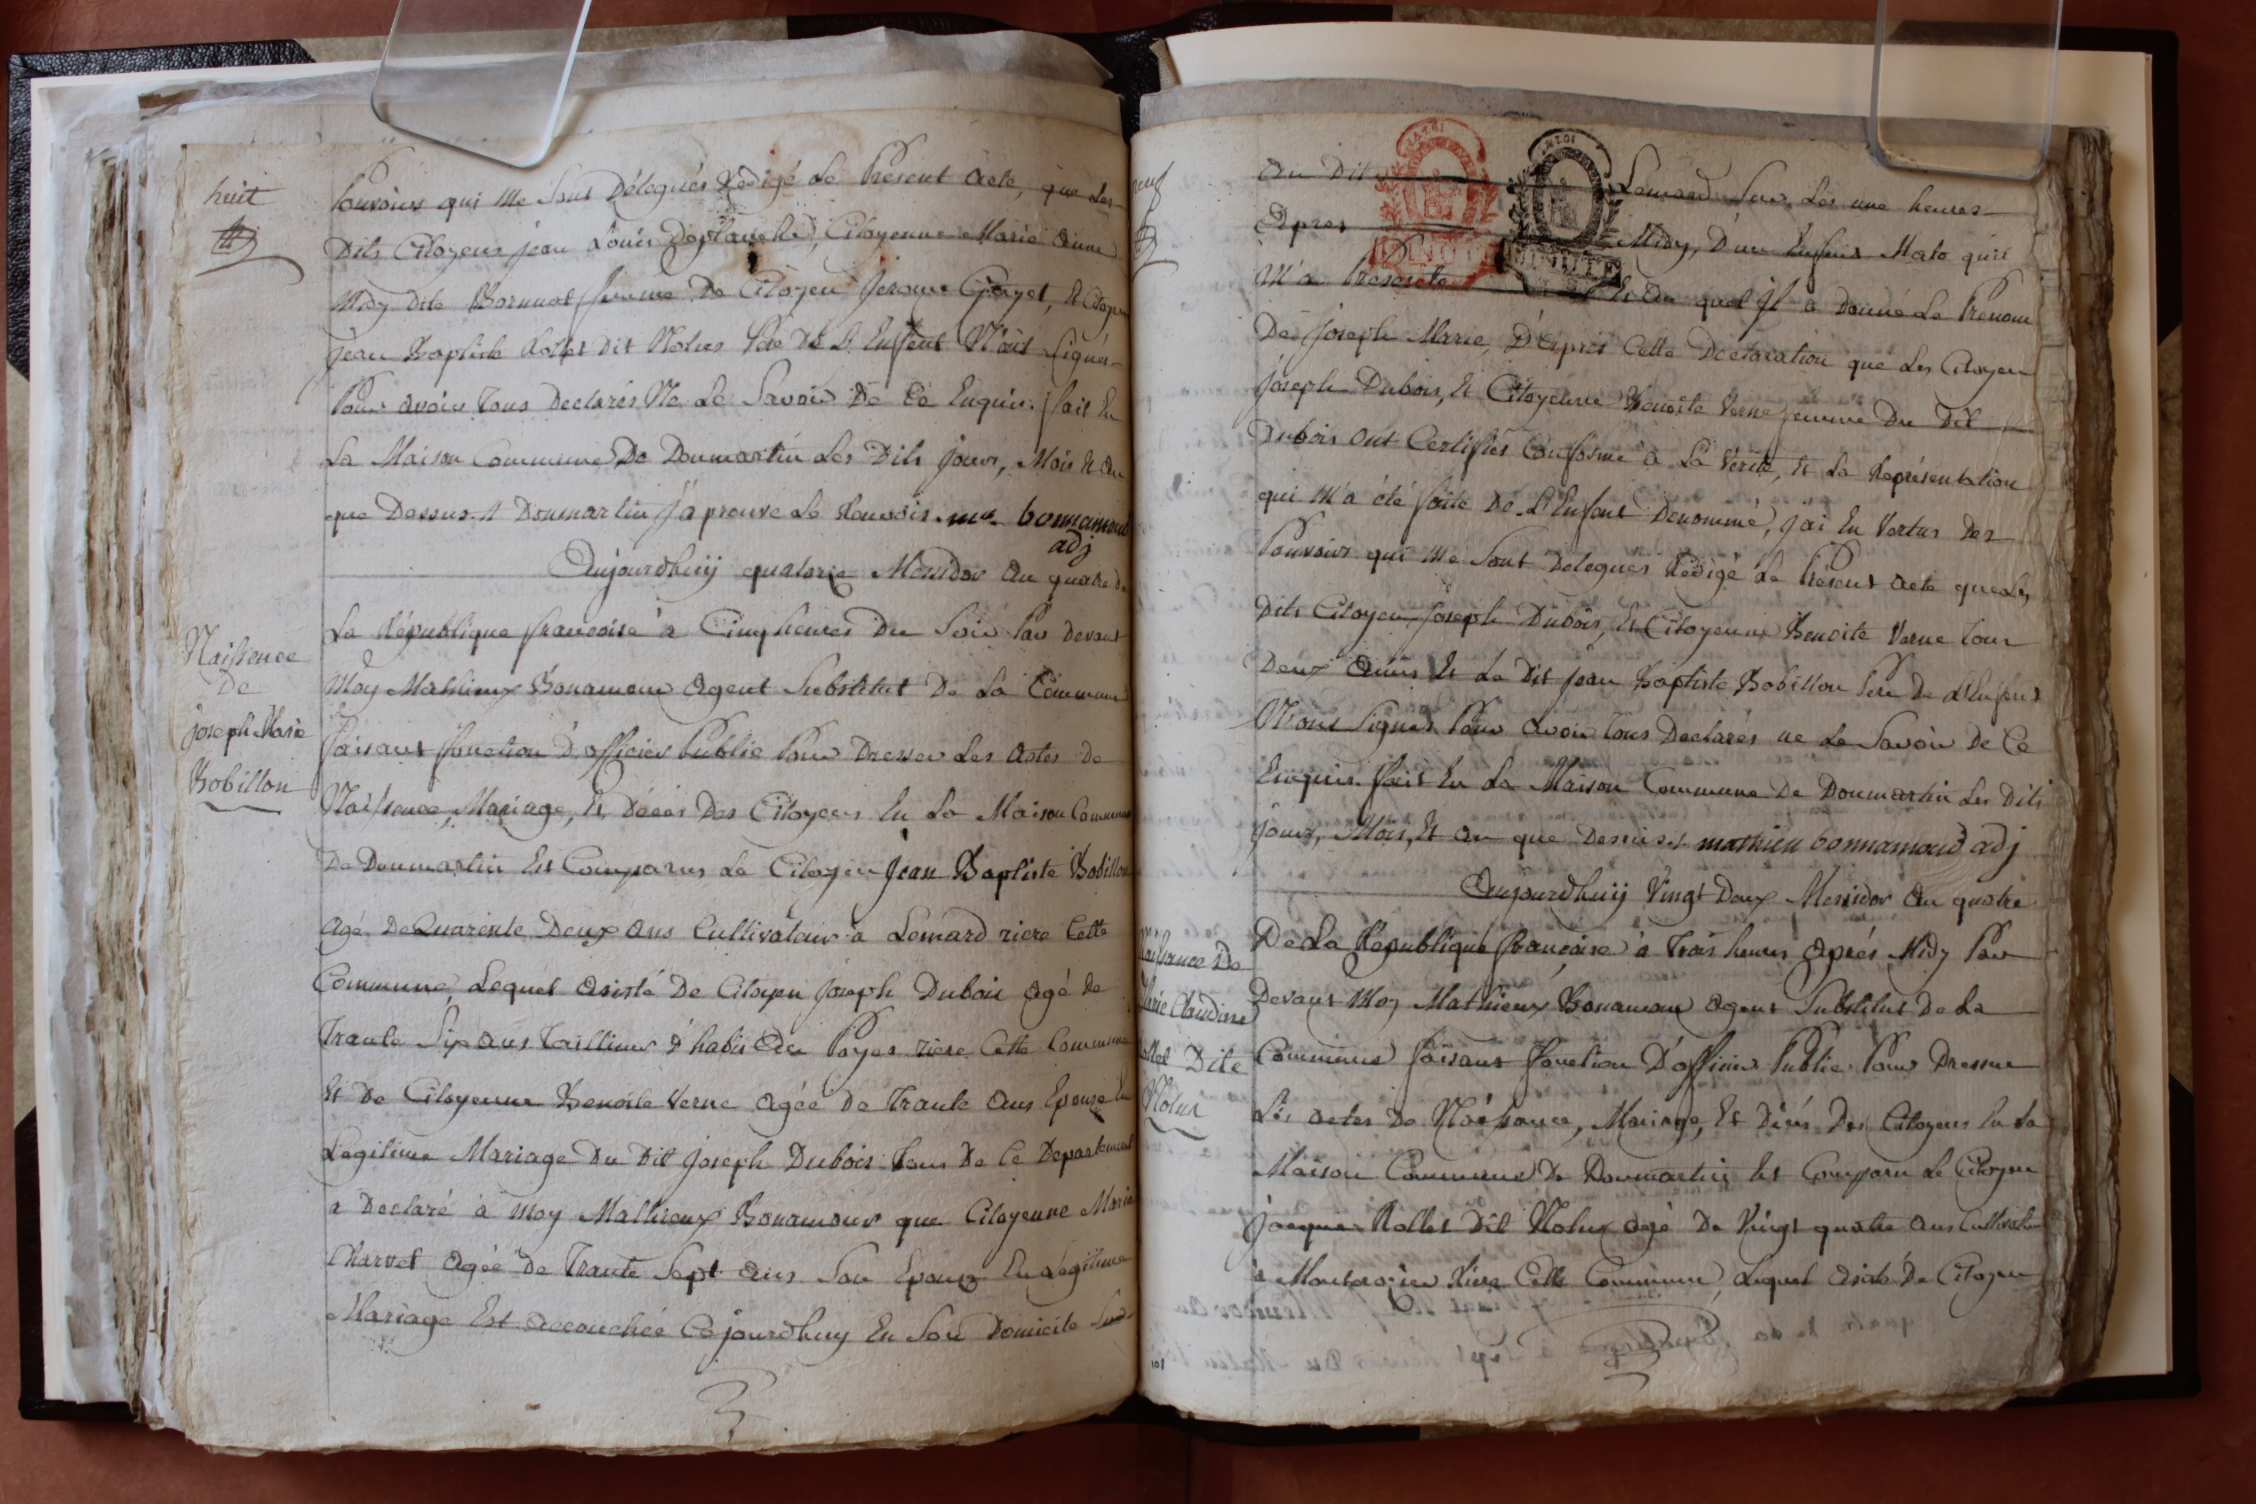 huit
Pouvoirs qui me sont délegués Redigé Le Present acte, que Les
Dits Citoyens jean Louis Deplanche, Citoyenne Marie aimé
Midy dite Bonnat femme De Citoyen Jerome Gayet, et Citoyen
jean Baptiste Rollet dit Nolus Pere De L'Enfent N'ont signés
Pour avoir Tous Declarés Ne Le Savoir De Ce Enquis. fait En
La Maison Commune De Doumartin Les Dits jours, Mois Et an
que Dessus. à Doumartin J'aprouve Le Renvois. bonnamour
adj
Aujourdhuÿ quatorze Messidor an quatre de
La République francoise à Cinq heures Du Soir Par Devant
Moy Mathieux Bonamour agent Substitut De La Commune
faisant fonction D'officier Public Pour Dresser Les actes de
Naissence, Mariage, Et Décés Des Citoyens En La Maison Commune
De Doumartin Est Comparus Le Citoyen Jean Baptiste Bobillon
agé De Quarente Deux ans Cultivateur à Lemard riere Cette
Commune, Lequel asisté De Citoyen Joseph Dubois agé de
Trante Six ans Tailleur d'habis Au Poyet riere Cette Commune
Et De Citoyenne Benoite Verne agée De Trante ans Epouse En
Legitime Mariage Du Dit Joseph Dubois Tous De Ce Departement
a Declaré à moy Mathieux Bonamour que Citoyenne Marie
Charvet agée De Trante Sept ans Son Epouze En Légitime
Mariage Est accouchée Cejourdhuy En Son Domicile
Naissence
De
joseph Marie
Bobillon
neuf
au Dit Lemard Sur Les une heures
apres Midy, D'un Enfens Male qu'il
M'a Presenté Et Au quel Jl a Donné Le Prenom
De Joseph Marie, D'après Cette Declaration que Les Citoyen
Joseph Dubois, Et Citoyenne Benoite Verne femme Du Dit
Dubois ont Certifiés Conforme à La Vérité, Et La Représentation
qui M'a été faite De L'Enfant Denommé, j'ai En Vertus Des
Pouvoirs qui Me Sont Delegués Rédigé Le Présent acte que Les
Dits Citoyen Joseph Dubois, Et Citoyenne Benoite Verne Tour
Deux amis Et Le Dit Jean Baptiste Bobillon Pere De L'Enfens
N'ont Signés Pour avoir Tous Declarés ne Le Savoir De Ce
Enquis. fait En La Maison Commune De Doumartin Les Dits
jours, Mois, Et an que Dessus. mathieu bonnamour adj
Aujourdhuÿ Vingt Deux Messidor an quatre
De La République francoise à Trois heures Aprés Midy Par
Devant Moy Mathieux Bonamour agent Substitut De La
Commune faisant fonction D'officier Public Pour Dresser
Les actes De Naissance, Mariage, Et Décés Des Citoyens En La
Maison Commune De Doumartin Est Comparu Le Citoyen
Jacque Rollet Dit Nolux agé De Vingt quatre ans Cultivateur
à Riere Cette Commune, Lequel asisté De Citoyen
Naissance De
Marie Claudine
Rollet Dite
Nolus
MINUTE
MINUTE
101